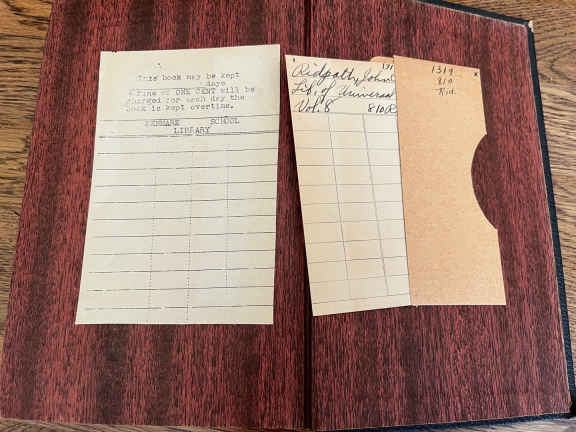 This book may be kept
days
A fine of ONE CENT will be
charged for each day the
book is kept overtime.
KENMARE SCHOOL
LIBRARY
Ridpath, John C
Lib. of Universal
Vol. 8 810R
1319
810
Rid.